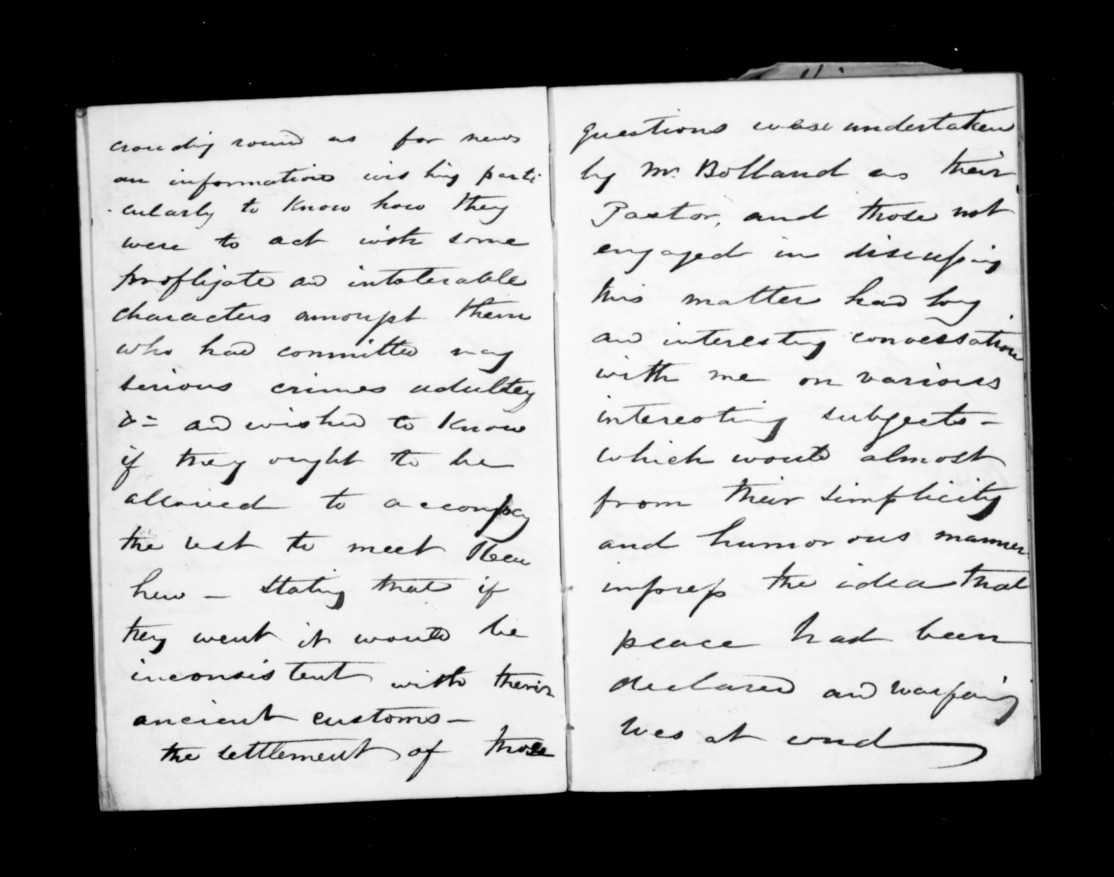 crowding round us for news
an information wishing parti
cularly to know how they
were to act with some
profligate and intolerable
characters amongst them
who had committed many
serious crimes adultery
&= and wished to know
if they ought to be
allowed to accompany
the rest to meet
here — stating that if
they went it would be
inconsistent with their
ancient customs —
the settlement of those
questions was undertaken
by Mr. Bolland as their
Pastor, and those not
engaged in discussing
this matter had long
and interesting conversation
with me on various
interesting subjects —
which would almost
from their simplicity
and humorous manner
impress the idea that
peace had been
declared and warfaring
was at end